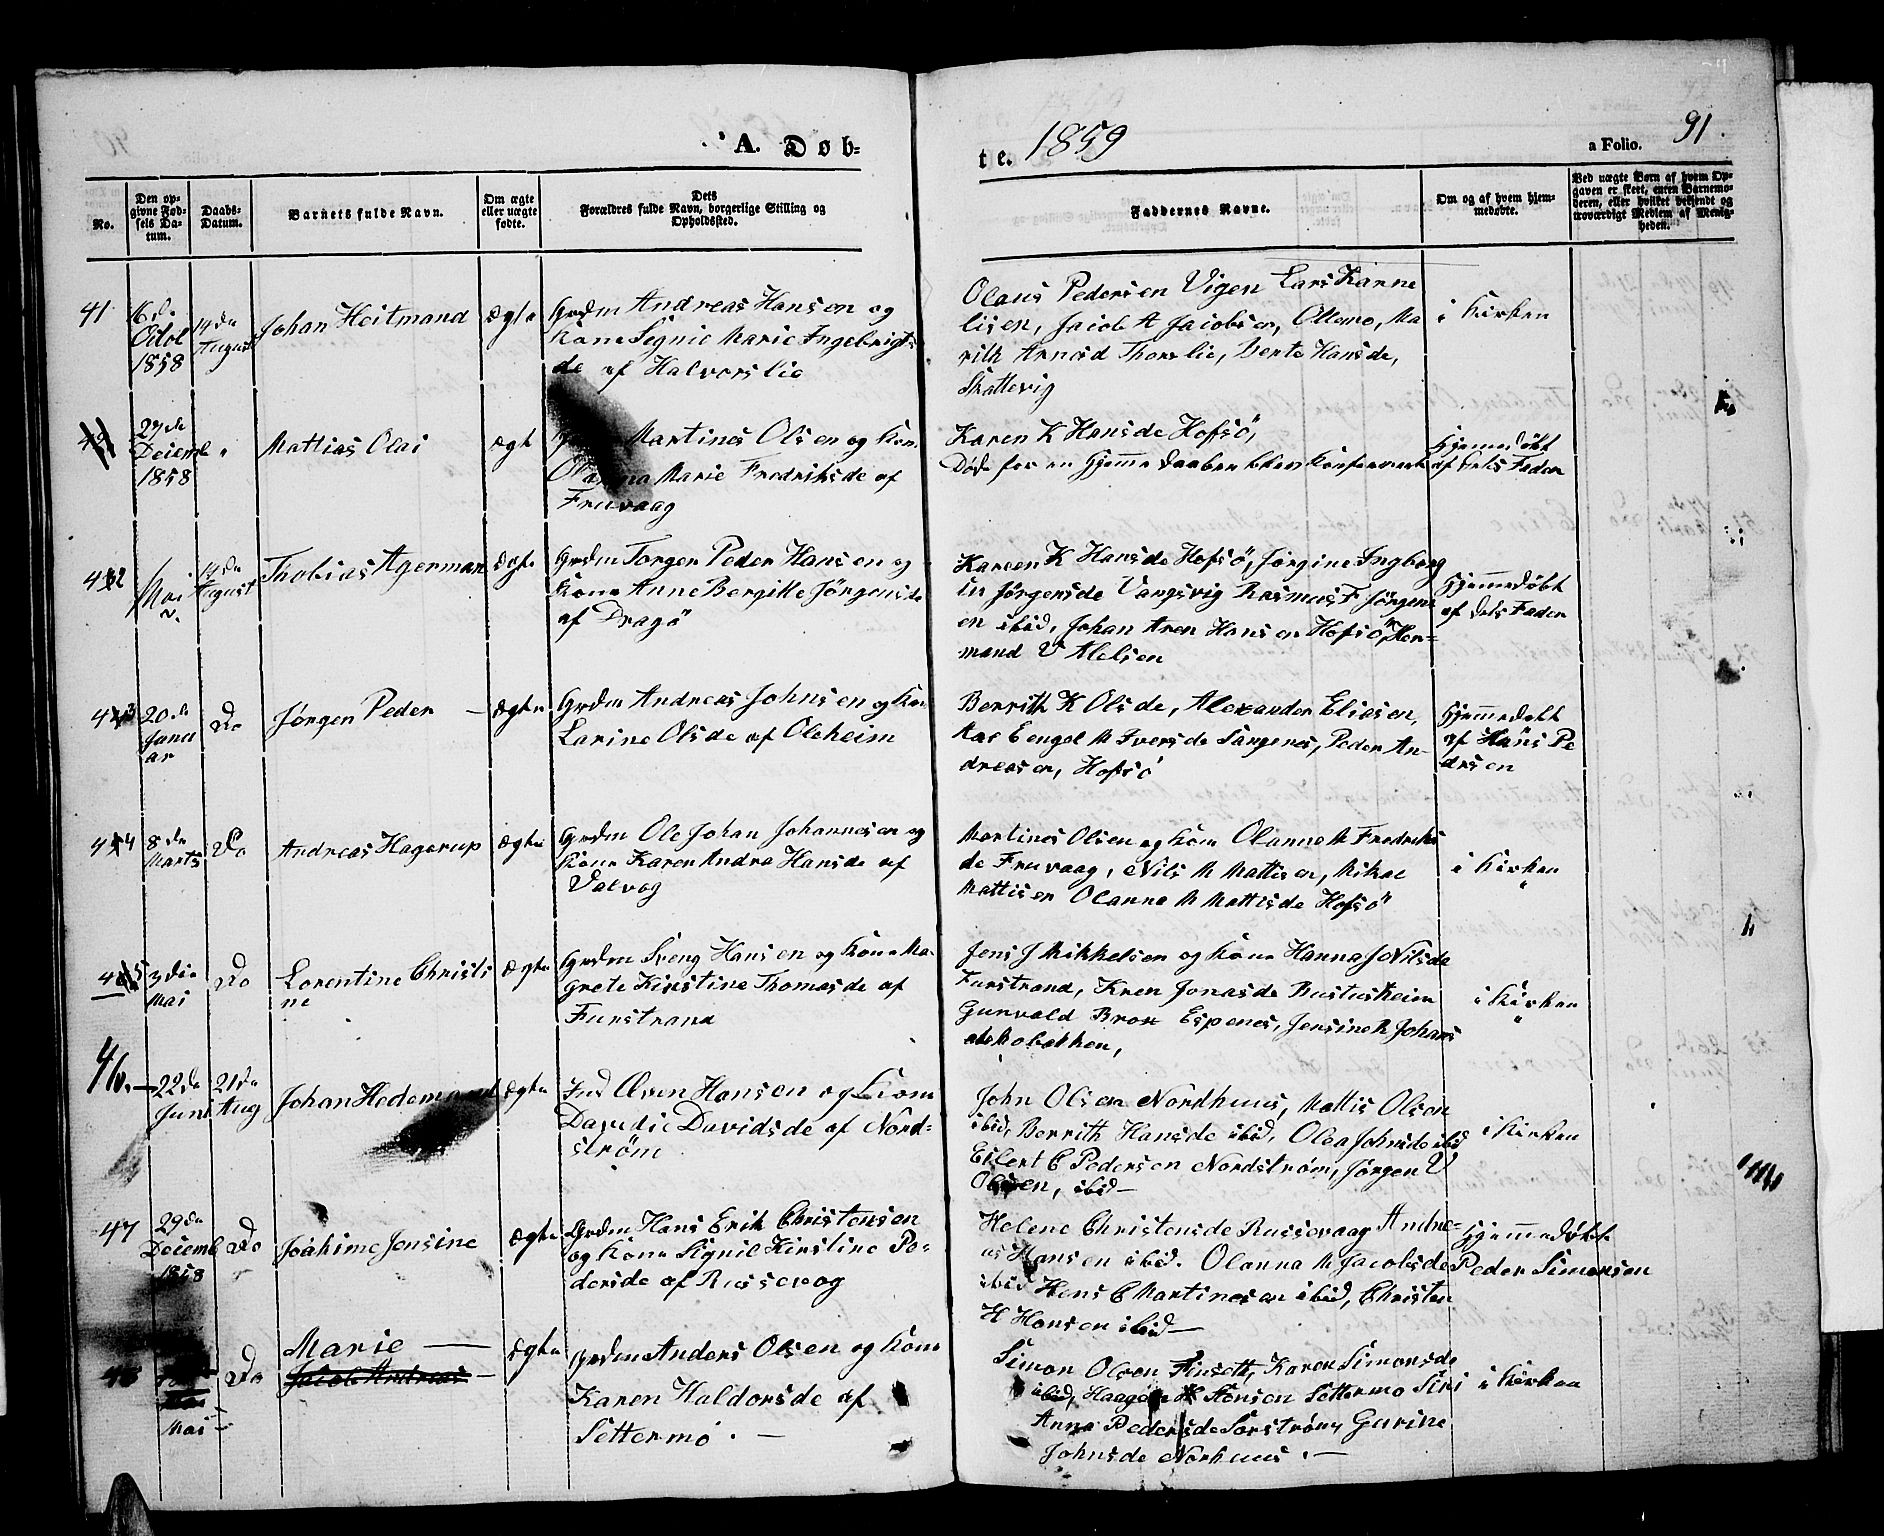 A. Døb=
te. 1859
a Folio. 91.
No.
Den op-
givne Fød-
sels Da-
tum.
Daabs-
Datum.
Barnets fulde Navn.
Om ægte
eller uægte
fødte.
Dets
Forældres fulde Navn, borgerlige Stilling og
Opholdssted.
Faddernes Navne.
Om og af hvem hjem-
medøbte.
Ved uægte Børn af hvem Op-
gaven er skeet, enten Barnemo-
deren, eller hvilket bekjendt og
troværdigt Medlem af Menig-
heden.
41
16de
1858
14de
August
Johan Heitmand
Ægte
Grdm Andreas Hansen og
Kone Signie Marie Ingebrigts
de af Halvorslie
Olaus Pedersen Vigen Lars Kanne
lisen, Jacob A Jacobsen, Ollemo, Ma
rith Arnesd Thorslie, Berte Hansde,
Skattevig
i Kirken
27de
Decemb
1858
Mattias Olai
ægt
Martines Olsen og Kon.
Marie Fredriksde af
Fruvaag
Karen K Hansde Hofsö,
Døde for en Hjemmedaaben blev Konfermert
Hjemedöbt
af dets Fader
42
Mai
14de
August
Thobias Agerman
Ægte
Grdm Torger Peder Hansen og
Kone Anne Bergitte Jörgensde
af Dragö
Kareen K Hansde Hofsö, Jørgine Ingborg
Jørgensde Vangsvig Rasmus F Jörgens
en ibid, Johan Aren Hansen Hofsö, Her=
mand U Alelsen
Hjemmedöbt
af dets Fader
43
20de
Janu
ar
Do
Jørgen Peder —
Ægte
Grdm Andreas Johnsen og Kon
Larine Olsde af Oleheim
Berrith K Olsde, Alexander Eliasen,
Kar Eengel M Iversde Sangenes, Peder An-
dreasen, Hofsö
Hjemmedöbt
af Hans Pe
dersen
44
8de
Marts
Do
Andreas Hagerup
Ægte
Grdm Ole Johan Johannesen og
Kone Karen Andrea Hansde af
Valvog
Martines Olsen og Kone Olanna M Fredriks
de Fruvaag, Nils M Mattisen, Mikal
Mattisen Olanna M Mattisde Hofsö
i Kirken
45
3die
Mai
Do
Lorentine Christi
ne
Ægte
Grdm Sveng Hansen og Kone Ma-
grete Kirstine Thomasde af
Furstrand
Jens J Mikkelsen og Kone Hanna J Nilsde
Furstrand, Kren Jonasde Rustusheim
Gunvald Brox Espenes, Jensine M Johans
de Mobakken,
i Kirken
46. —
22de
Juni
21de
Aug
Johan Hedemand
Ægte
Ind Even Hansen og Kone
Davidie Davidsde af Nord=
ström
John Olsen Nordhuus, Mattis Olsen
ibid, Berrith Hansde ibid, Olea Johnsde ibid
Eilert E Pedersen Nordström, Jørgen U
Olsen, ibid —
i Kirken
47
29de
Decemb
1858
Do
Joakime Jensine
Ægte
Grdm Hans Erik Christensen
og Kone Signil Kirstine Pe-
dersde af Russevog
Helene Christensde Russevaag Andre=
as Hansen ibid. Olanna M Jacobsde
ibid Hans E Martinesen ibid, Christen
H Hansen ibid —
Hjemmedöbt
Peder Simonsen
48
Mai
Do
Marie —
Jacob Andreas —
Ægte
Grdm Anders Olsen og Kone
Karen Haldorsde af
Settermo. —
Simon Olson Finseth, Karen Simonsde
ibid, Haagen H Stensen Settermo Siri
Anna Pedersde Sørström, Gurine
Johnsde Norhuus. —
i Kirken